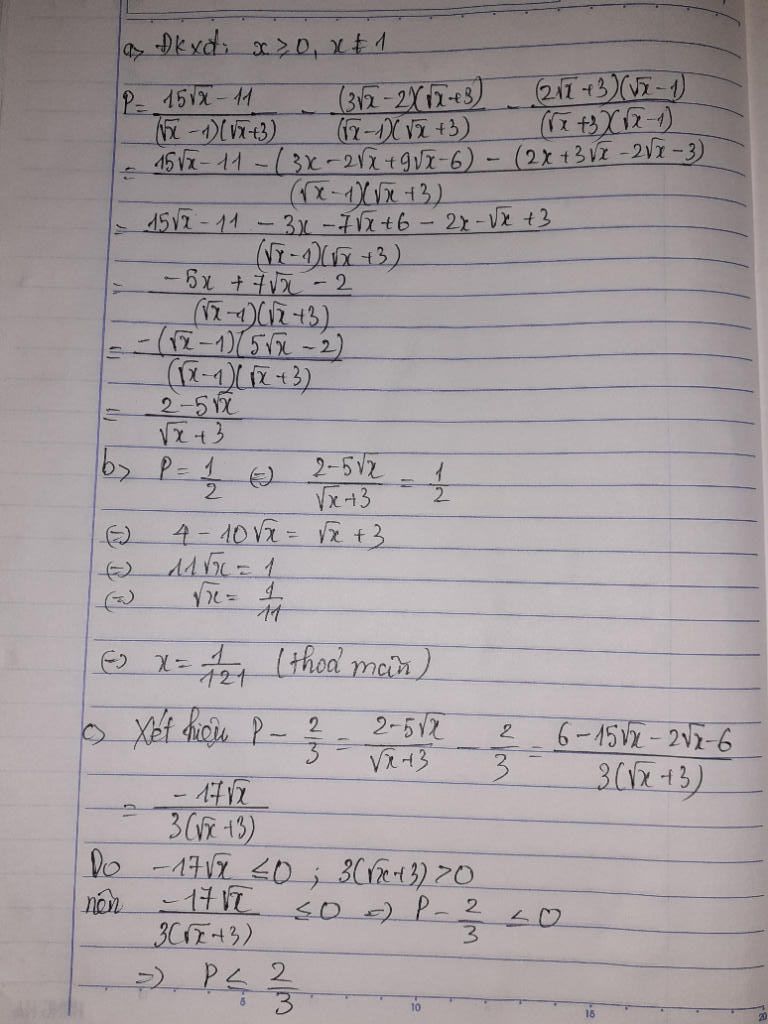 a> Đkxđ: x ≥ 0, x ≠ 1
P = (15√x - 11)/((√x - 1)(√x + 3)) - ((3√x - 2)(√x + 3))/((√x - 1)(√x + 3)) - ((2√x + 3)(√x - 1))/((√x + 3)(√x - 1))
= (15√x - 11 - (3x - 2√x + 9√x - 6) - (2x + 3√x - 2√x - 3))/((√x - 1)(√x + 3))
= (15√x - 11 - 3x - 7√x + 6 - 2x - √x + 3)/((√x - 1)(√x + 3))
= (-5x + 7√x - 2)/((√x - 1)(√x + 3))
= (-(√x - 1)(5√x - 2))/((√x - 1)(√x + 3))
= (2 - 5√x)/(√x + 3)
b> P = 1/2 ⇔ (2 - 5√x)/(√x + 3) = 1/2
⇔ 4 - 10√x = √x + 3
⇔ 11√x = 1
⇔ √x = 1/11
⇔ x = 1/121 (thoả mãn)
c> Xét hiệu P - 2/3 = (2 - 5√x)/(√x + 3) - 2/3 = (6 - 15√x - 2√x - 6)/(3(√x + 3))
= (-17√x)/(3(√x + 3))
Do -17√x ≤ 0 ; 3(√x + 3) > 0
nên (-17√x)/(3(√x + 3)) ≤ 0 ⇒ P - 2/3 ≤ 0
⇒ P ≤ 2/3
5 10 15 20